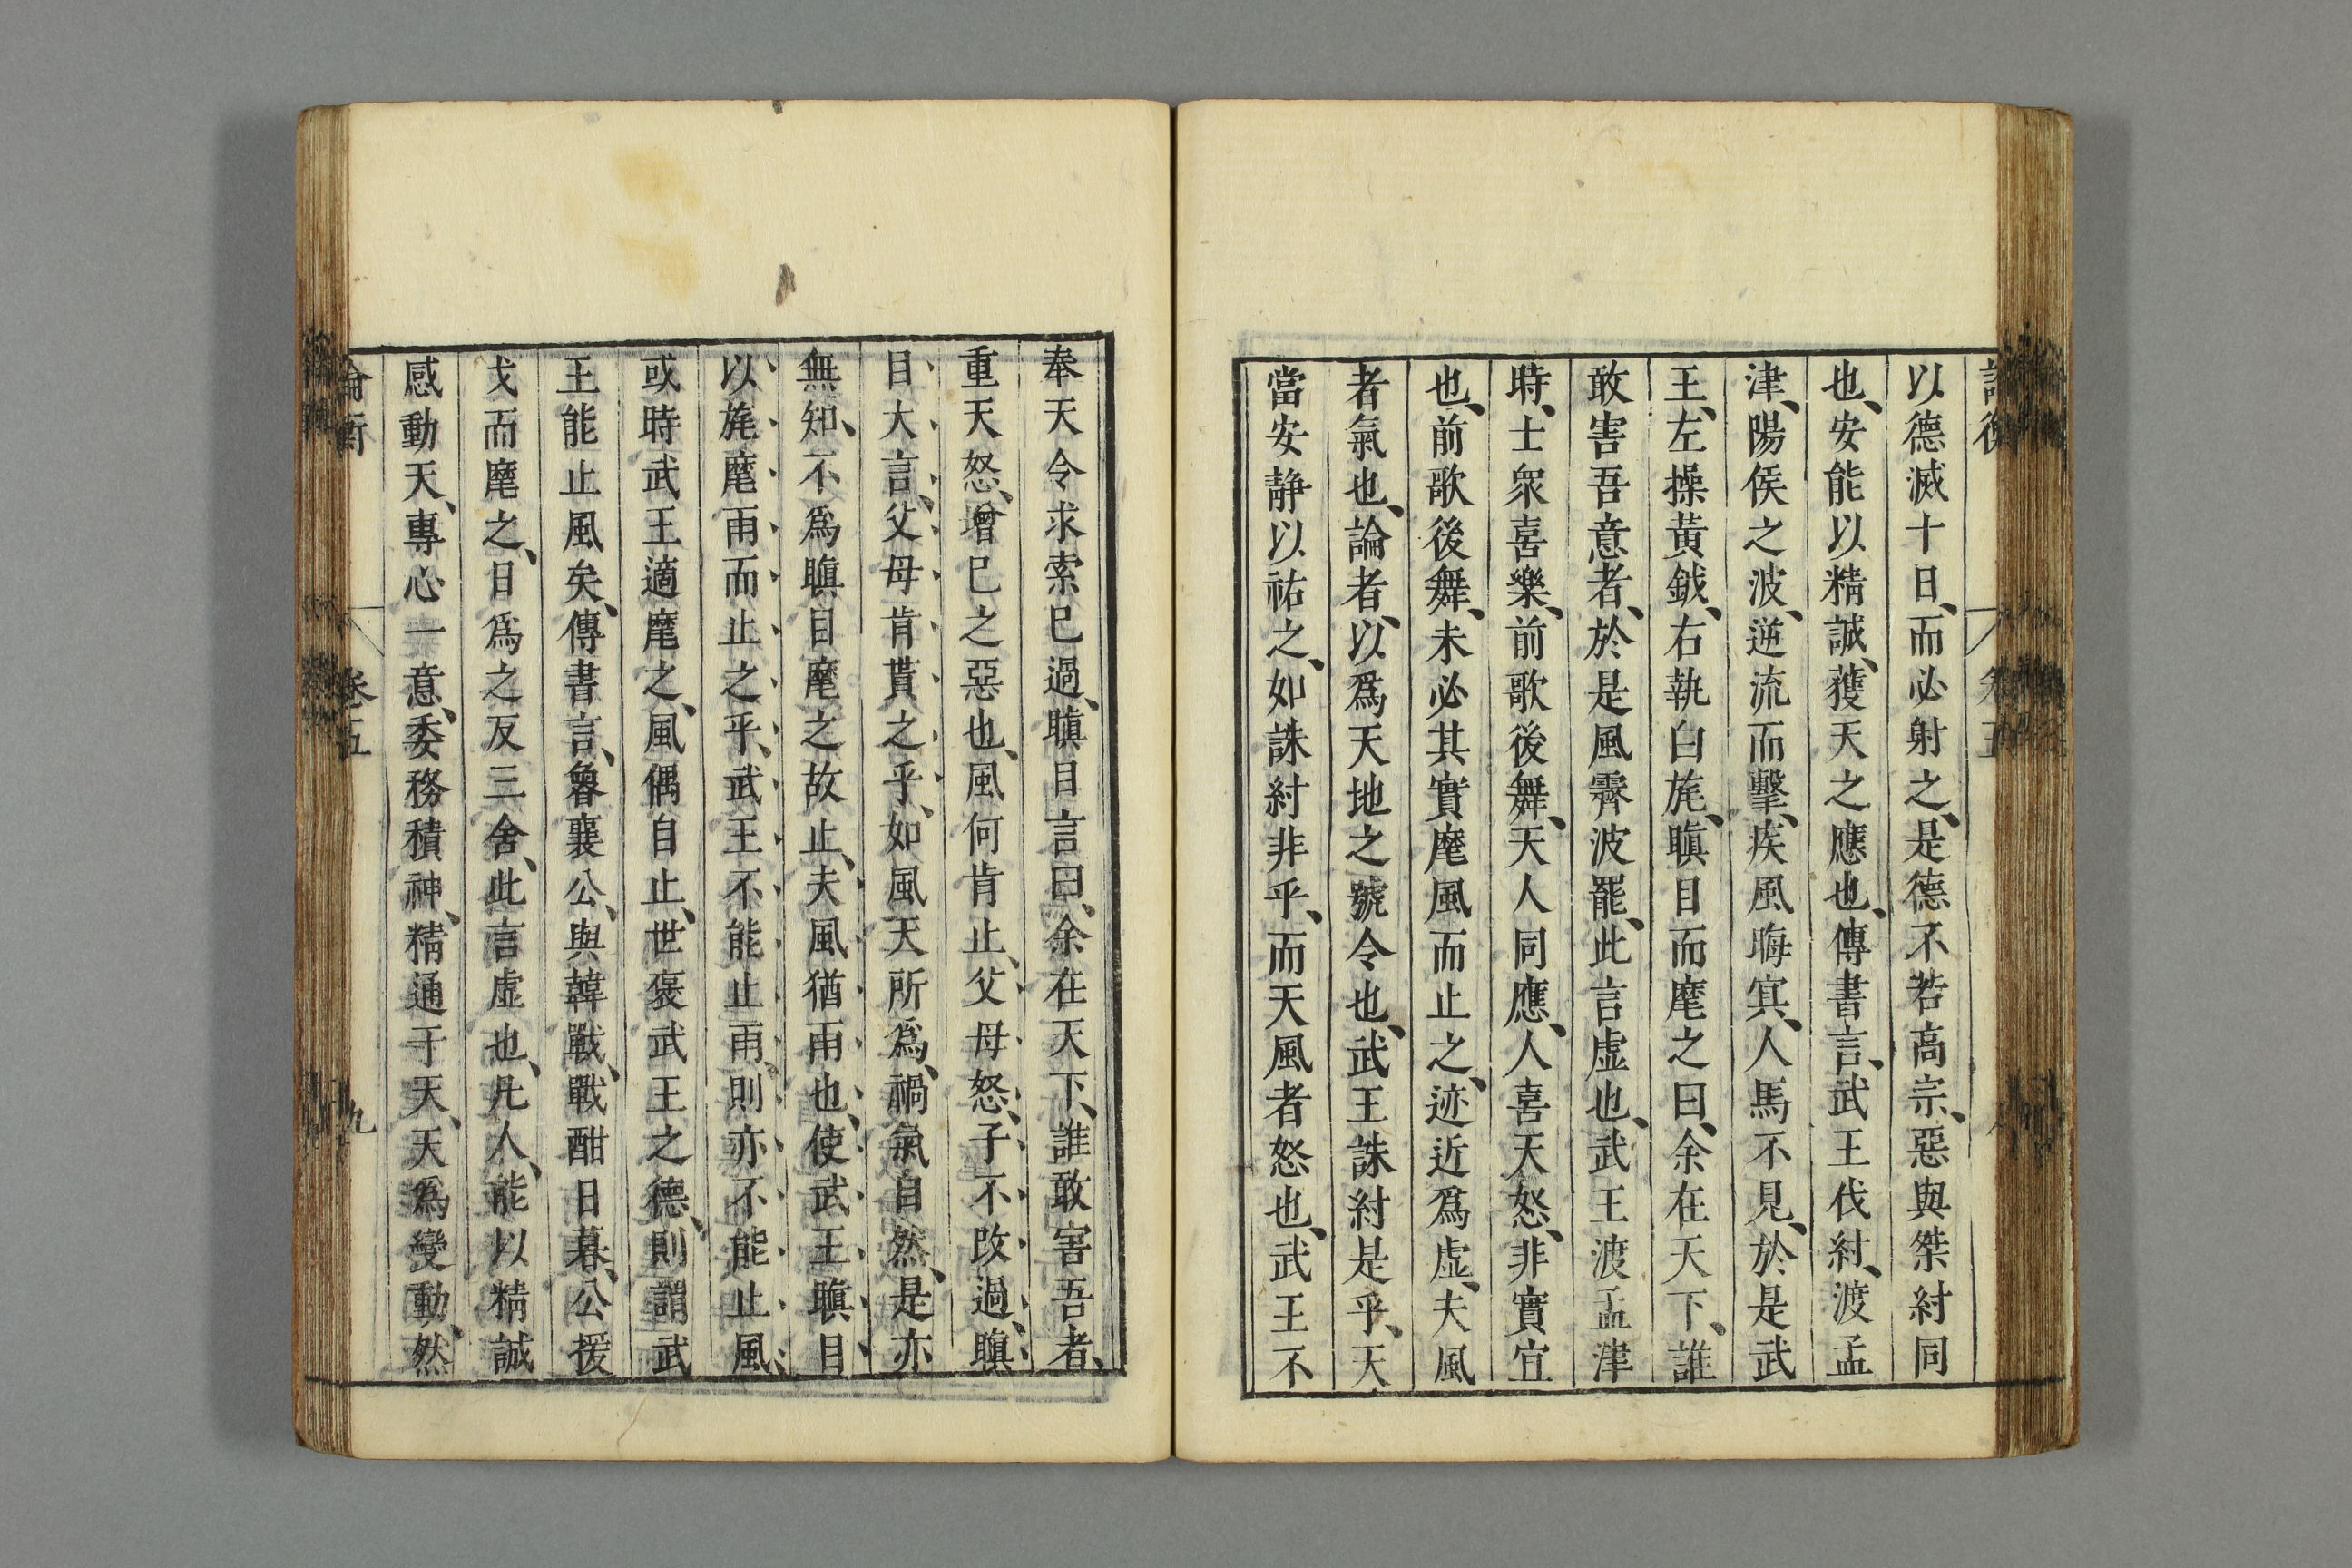 以德滅十日、而必射之、是德不若高宗、惡與桀紂同
也、安能以精誠、獲天之應也、傳書言、武王伐紂、渡孟
津、陽侯之波、逆流而擊、疾風晦冥、人馬不見、於是武
王、左操黃鉞、右執白旄、瞋目而麾之曰、余在天下、誰
敢害吾意者、於是風霽波罷、此言虛也、武王渡孟津
時、士衆喜樂、前歌後舞、天人同應、人喜天怒、非實宜
也、前歌後舞、未必其實麾風而止之、迹近爲虛、夫風
者氣也、論者、以爲天地之號令也、武王誅紂是乎、天
當安靜以祐之、如誅紂非乎、而天風者怒也、武王不
奉天令求索已過、瞋目言曰、余在天下、誰敢害吾者、
重天怒、增已之惡也、風何肯止、父母怒、子不改過、瞋
目大言、父母肯貰之乎、如風天所爲、禍氣自然、是亦
無知、不爲瞋目麾之故止、夫風猶雨也、使武王瞋目
以旄麾雨而止之乎、武王不能止雨、則亦不能止風、
或時武王適麾之、風偶自止、世褒武王之德、則謂武
王能止風矣、傳書言、魯襄公、與韓戰、戰酣日暮、公援
戈而麾之、日爲之反三舍、此言虛也、凡人、能以精誠
感動天、專心一意、委務積神、精通于天、天爲變動、然
論衡 卷五 九